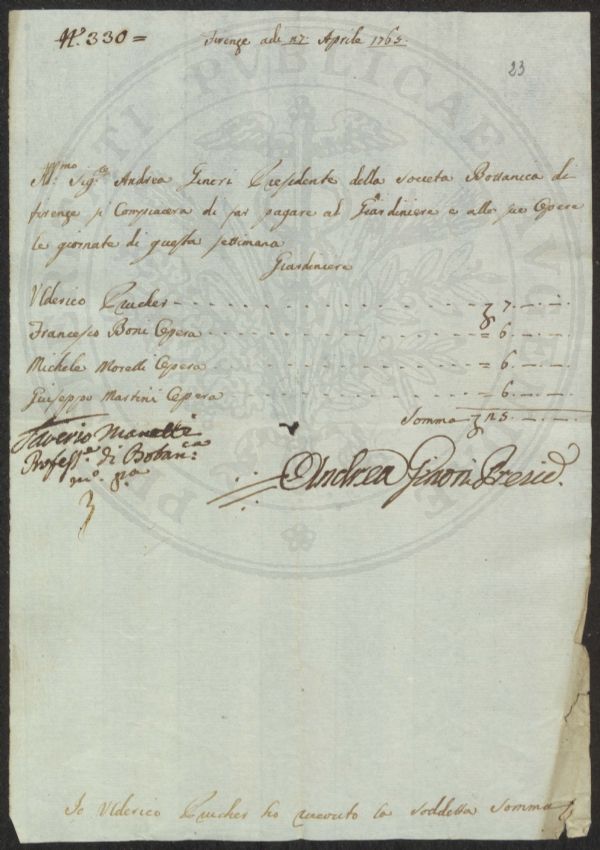 N.º 330 =
Firenze adi 27 Aprile 1765.
23
Ill.mo Sig.re Andrea Ginori Presidente della Societa Bottanica di
firenze si Compiacera di far pagare al Giardiniere e alle sue Opere
le giornate di questa settimana
Giardiniere
Ulderico Prucher 7
Francesco Boni Opera = 6
Michele Morelli Opera = 6
Giuseppo Martini Opera = 6
Somma 25
Saverio Manetti
Profess.e di Botan.ca
m.º p.a
Andrea Ginori Presid.
Io Ulderico Prucher ho riceuto la soddetta Somma
PUBLICAE